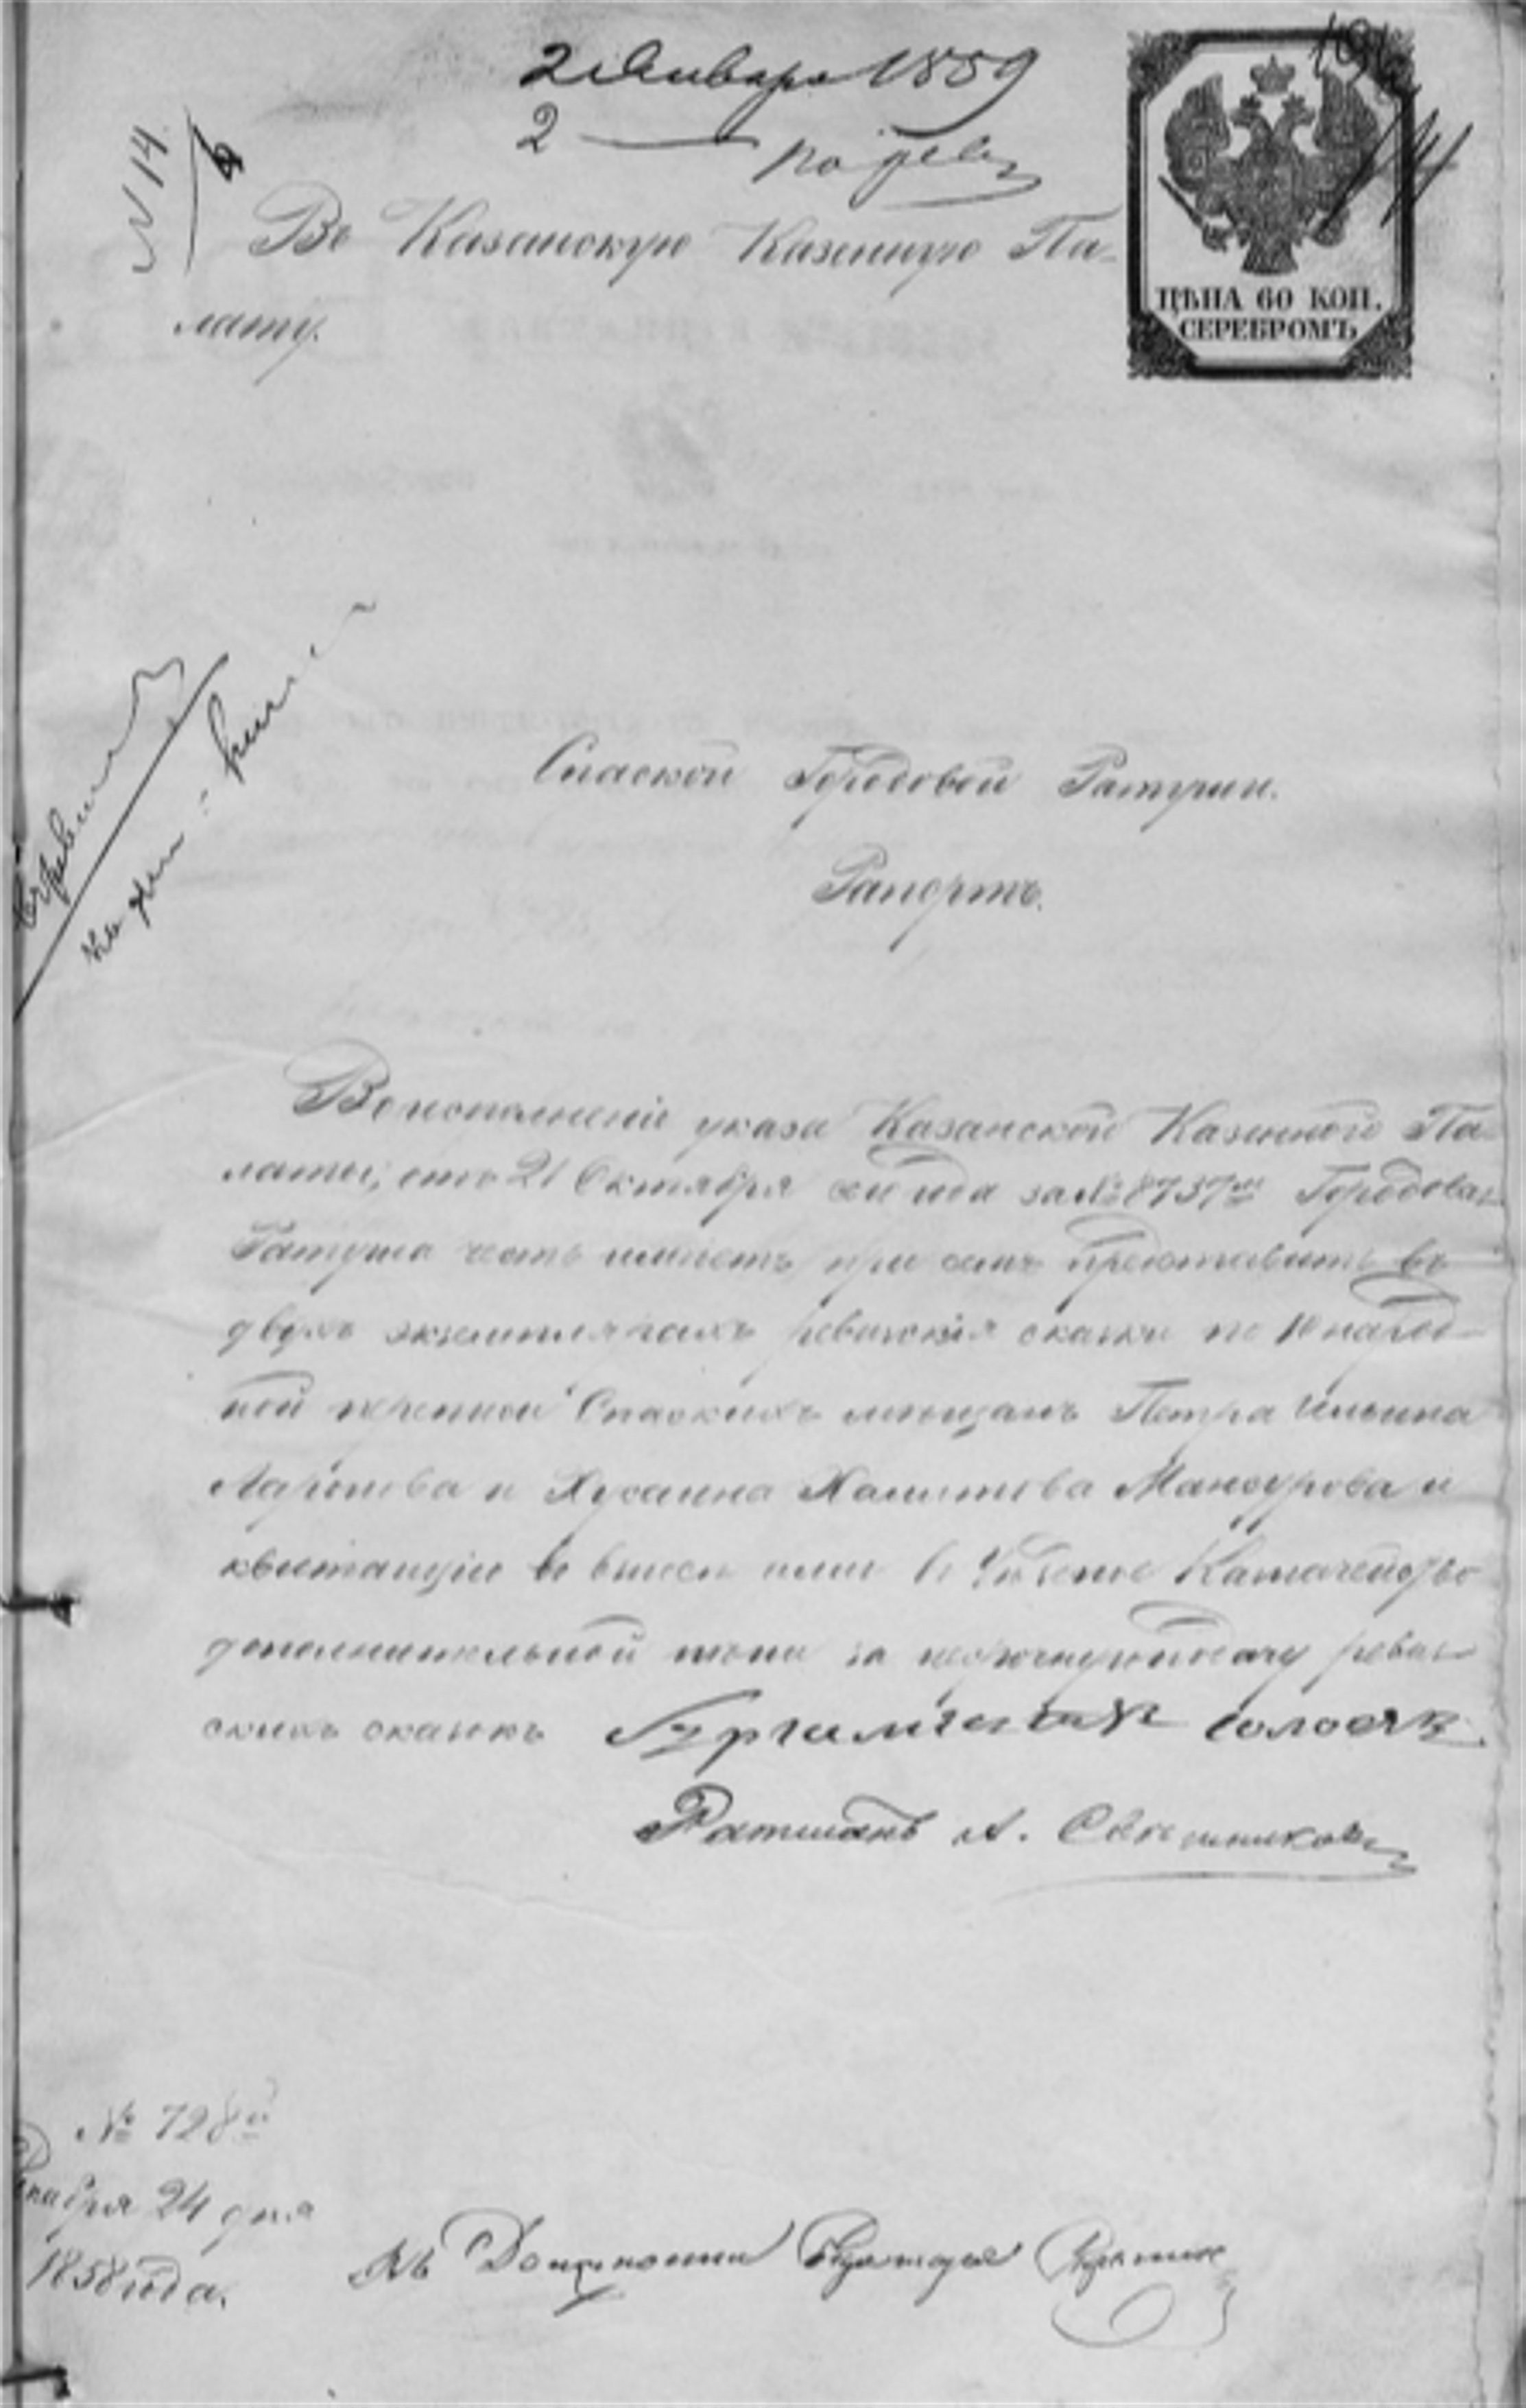 2 Января 1859
2
№ 14
Въ Казанскую Казенную Па-
лату.
ЦѢНА 60 КОП.
СЕРЕБРОМЪ
Спаской Городовой Ратуши.
Рапортъ.
Во исполненіе указа Казанской Казенной Па-
латы, отъ 21 Октября сего года за № 8737м Городовая
Ратуша честь имѣетъ при семъ представить въ
двухъ экземплярахъ ревизскія сказки по 10 народ-
ной переписи Спаскихъ мещанъ Петра Ильина
и Хусаина Хамитова Мансурова и
квитанціи во взносе ими въ Уѣздное Казначейство
дополнительной пени за несрочную подачу ревиз-
скихъ сказокъ
Ратманъ А. Свешниковъ
№ 728й
Декабря 24 дня
1858 года.
Въ Должности